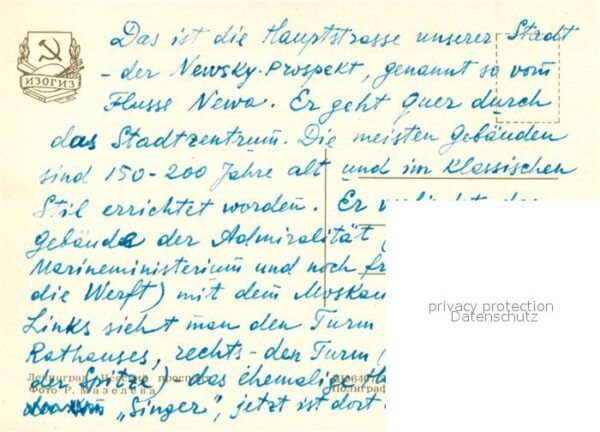 ИЗОГИЗ
Das ist die Hauptstrasse unserer Stadt
- der Newsky-Prospekt, genannt so vom
Flusse Newa. Er geht quer durch
das Stadtzentrum. Die meisten Gebäuden
sind 150-200 Jahre alt und im Klassischen
Stil errichtet worden. Er
Gebäude der Admiralität
Marineministerium und noch
die Werft) mit dem Moskau
Links sieht man den Turm
Rathauses, rechts - den Turm
Ленинград. Невский проспект
der Spitze) - das ehemalige
Фото Р. Мазелева
"Singer", jetzt ist dort
privacy protection
Datenschutz